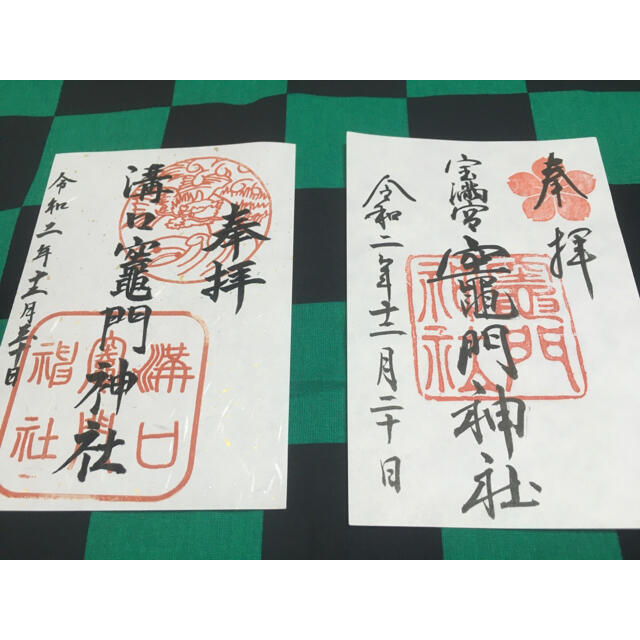 奉拝
溝口竈門神社
令和二年十二月二十日
溝口
竈門
神社
奉拝
宝満宮
竈門神社
令和二年十二月二十日
竈門
神社